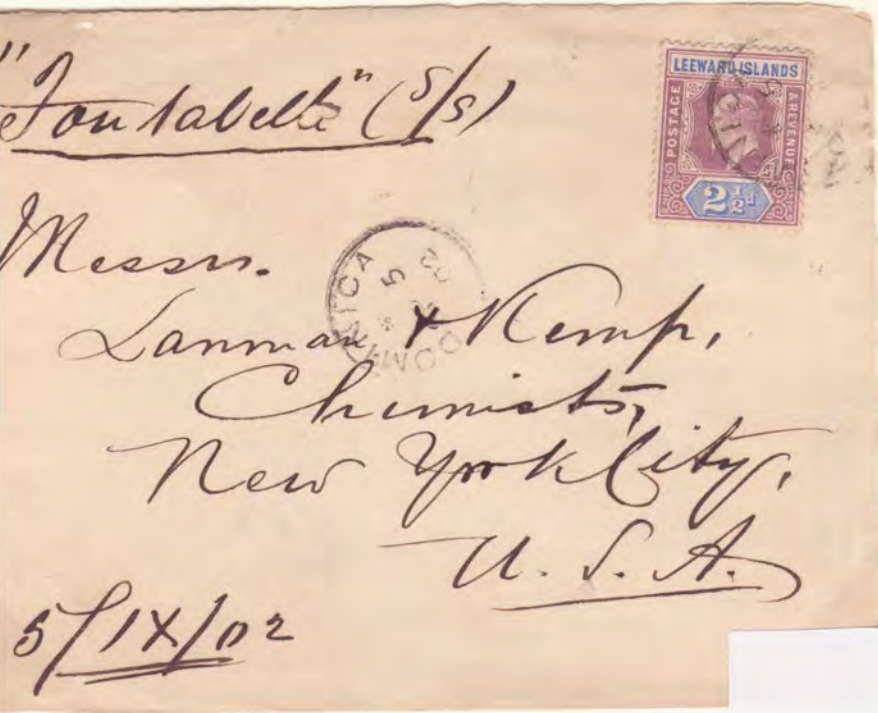 "Fontabelle" (S/S)
LEEWARD ISLANDS
POSTAGE
& REVENUE
2½d
Messrs.
DOMINICA
5
02
Lanman & Kemp,
Chemists,
New York City,
U. S. A.
5/IX/02